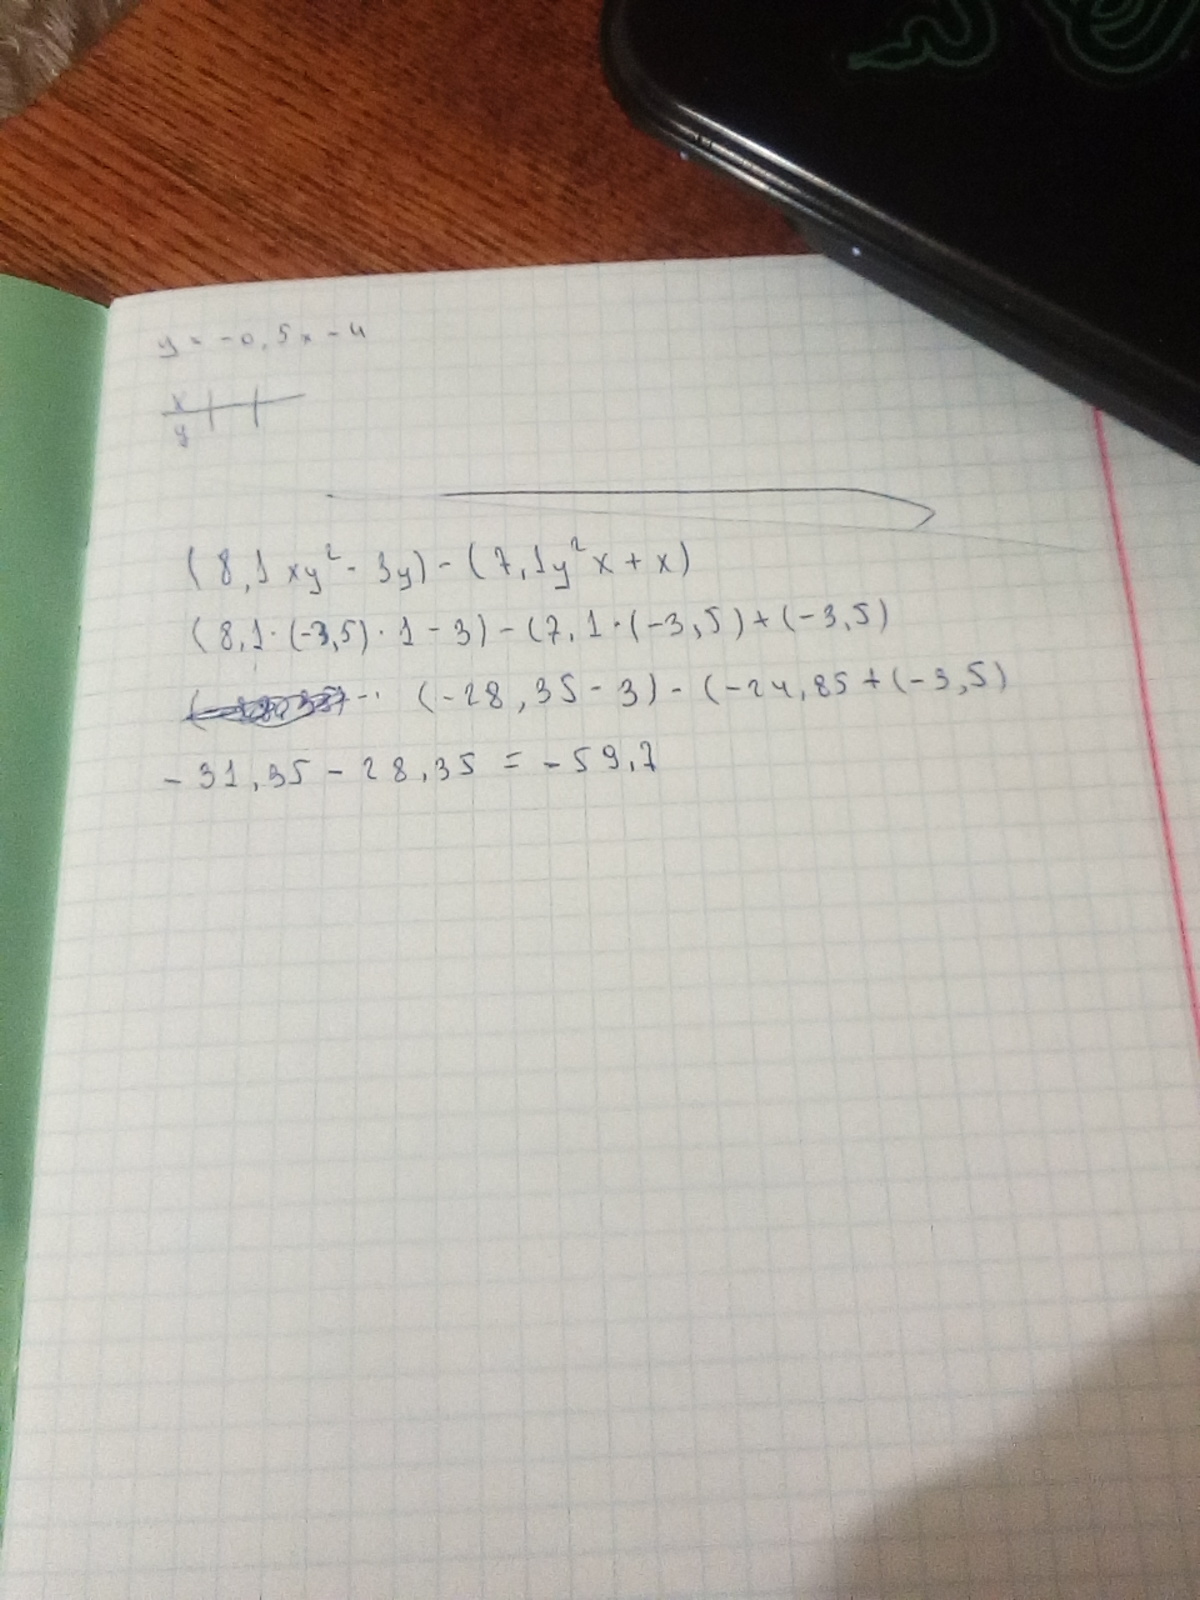 y = -0,5x - 4
x
y
(8,1xy² - 3y) - (7,1y²x + x)
(8,1·(-3,5)·1 - 3) - (7,1·(-3,5) + (-3,5)
(-28,35 - 3) - (-24,85 + (-3,5)
-31,35 - 28,35 = -59,7